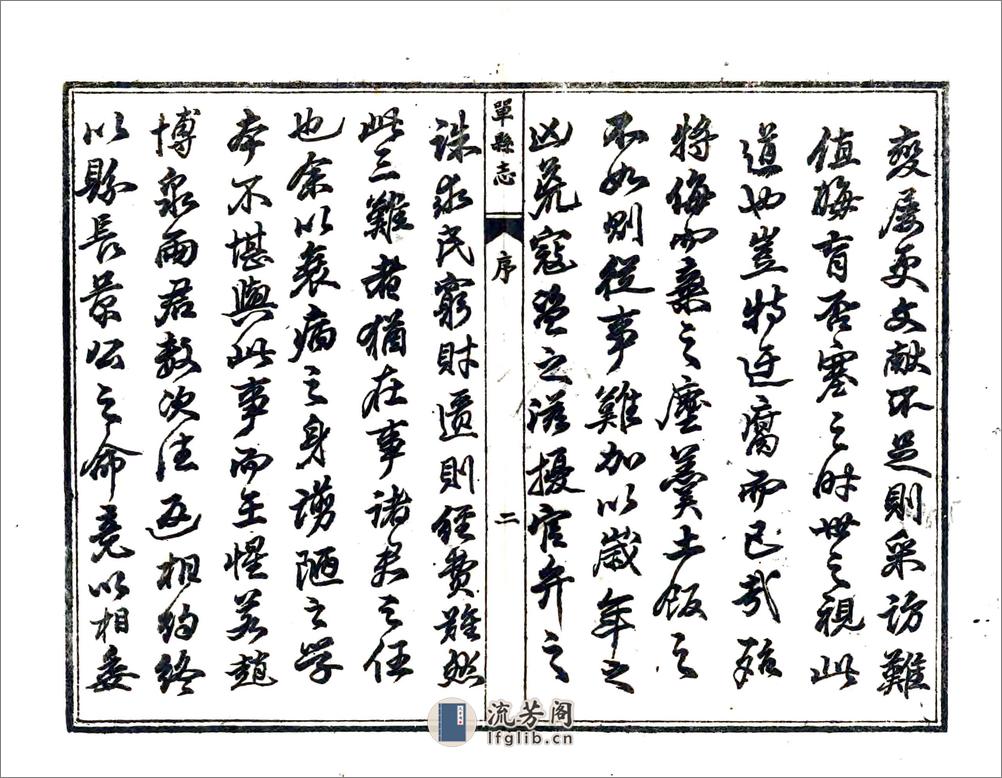 變屢更文献不足則采訪難
值晦盲否塞之时世之視此
道也豈特迂腐而已哉殆
將侮而棄之塵羹土飯之
不如則從事難加以歲年之
凶荒寇盜之滋擾官弁之
單縣志
序
二
誅求民窮財匱則經費難然
此三難者猶在事諸君之任
也余以衰病之身谫陋之学
本不堪與此事而王惺若趙
博泉兩君数次往返相約終
以縣長景公之命竟以相委
流芳阁
lfglib.cn